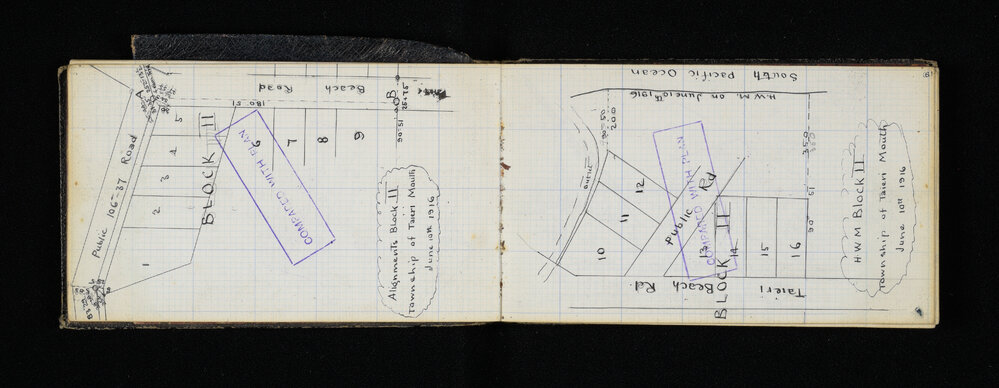 Public 106-37 Road
1
2
3
4
5
BLOCK II
6
7
8
9
180 51
Beach
Road
COMPARED WITH PLAN
A
OB
25.75
90 51
Alignments Block II
Township of Taieri Mouth
June 10th 1916
South Pacific Ocean
H.W.M. on June 10th 1916
200
350
90 51
10
11
12
13
14
15
16
Public Rd
COMPARED WITH PLAN
BLOCK II
Taieri
Beach Rd.
H.W.M Block II
Township of Taieri Mouth
June 10th 1916